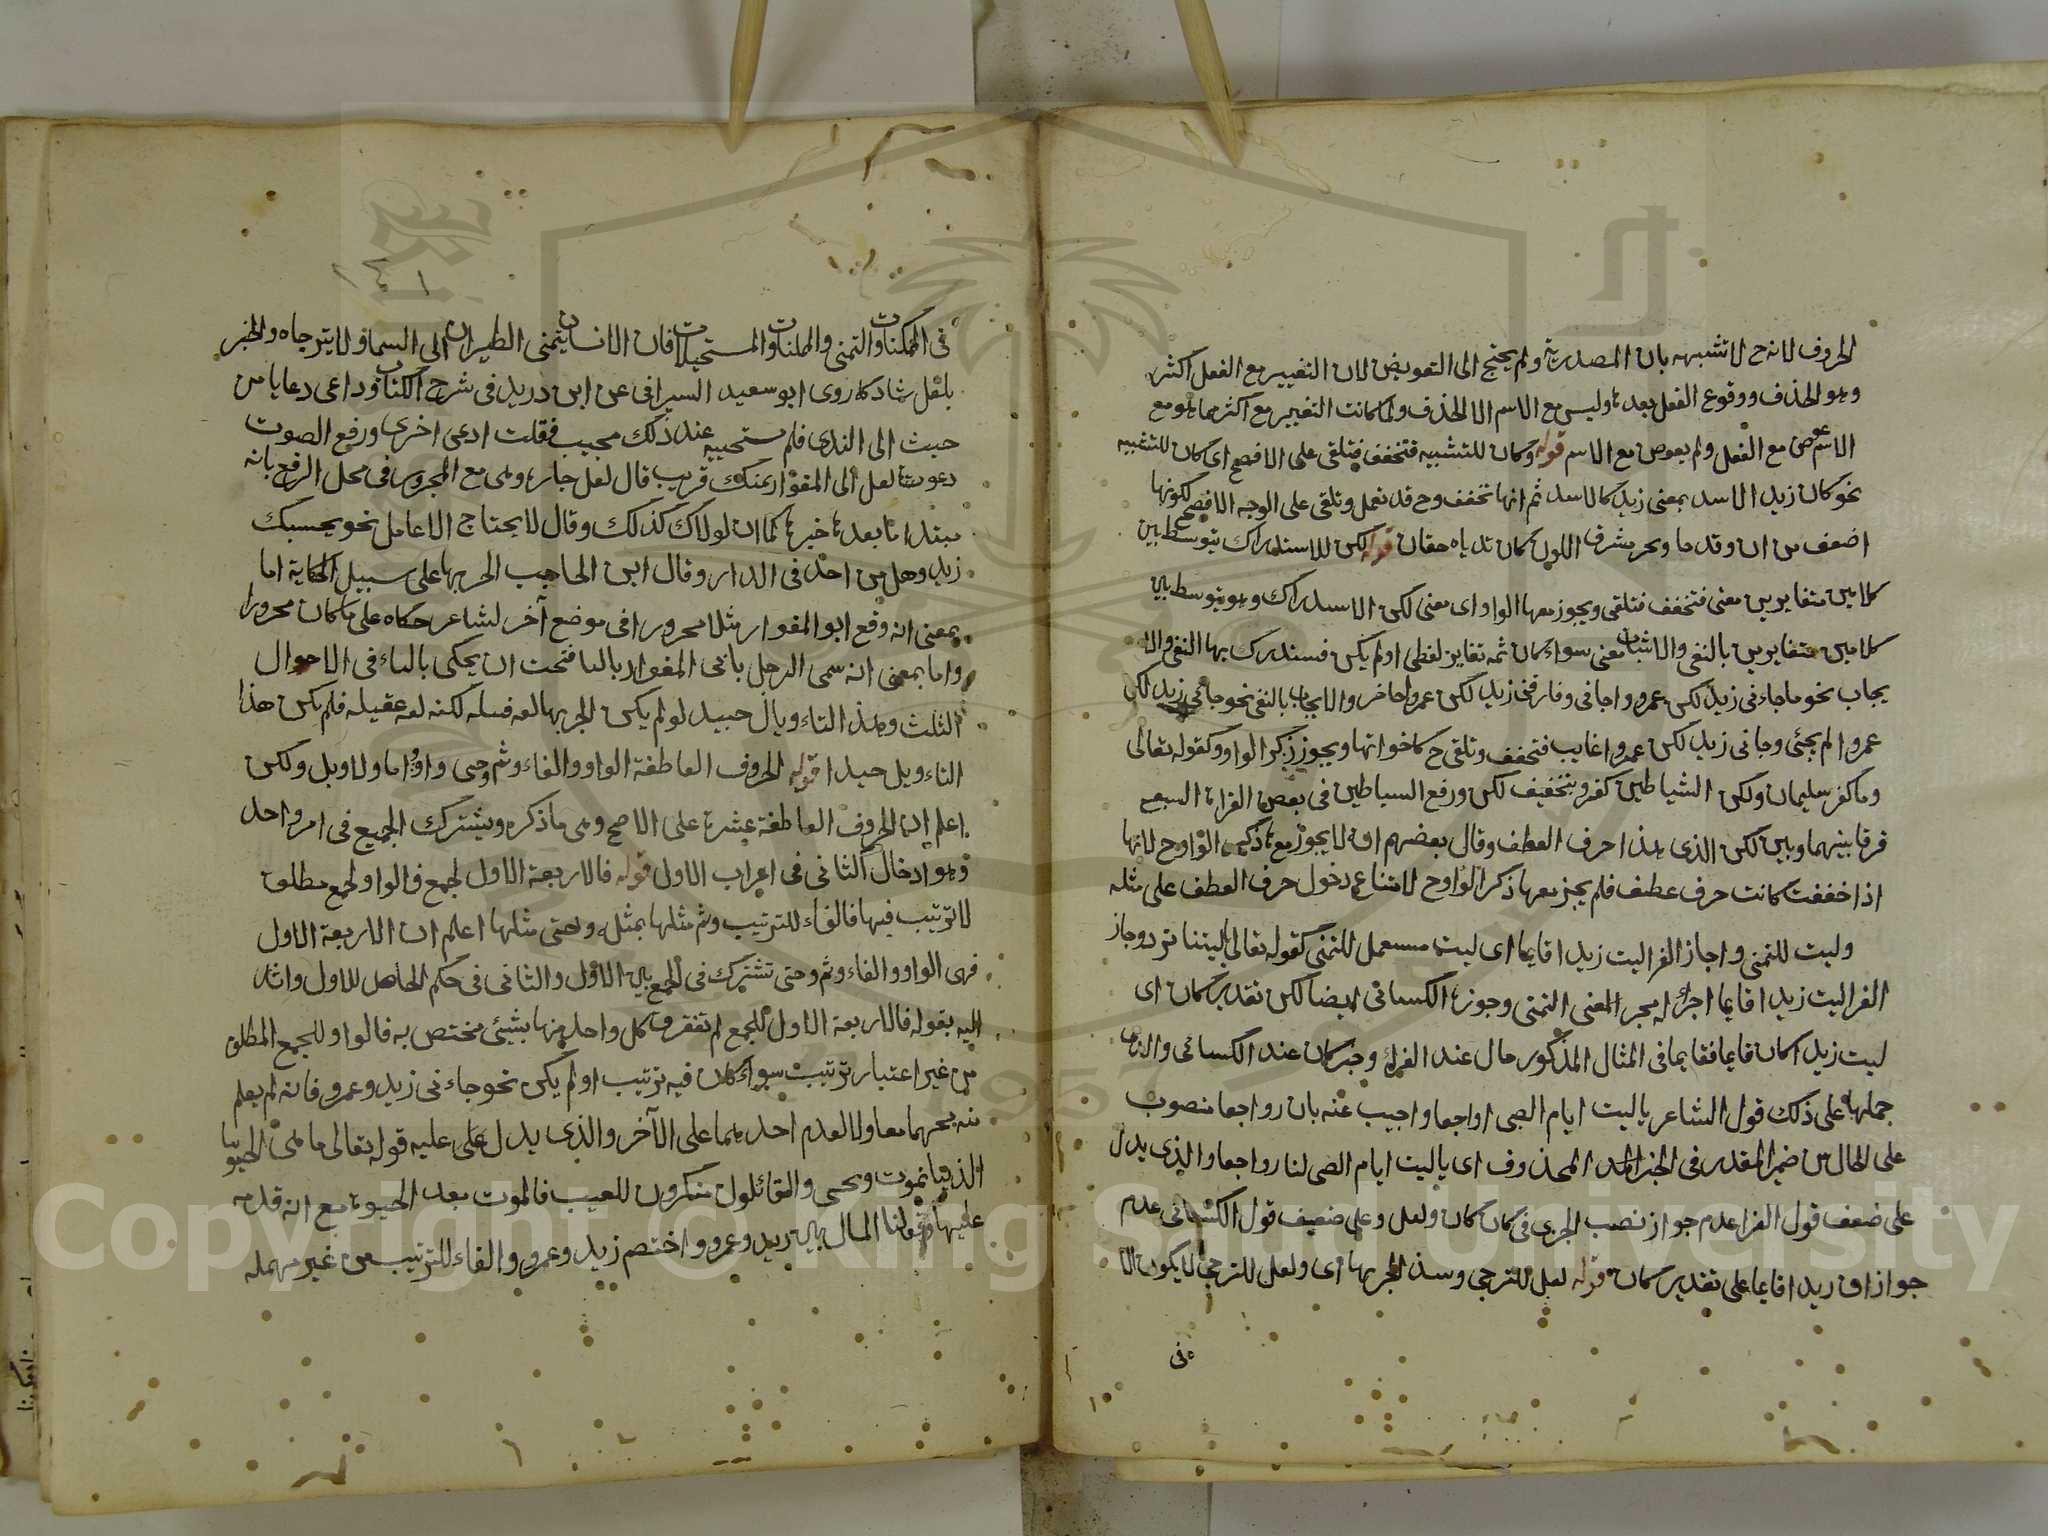 الحروف لانه ح لا تشبه بان المصدرية ولم يحتج الى التعويض لان التغيير مع الفعل اكثر
وهو الحذف ووقوع الفعل بعده وليس مع الاسم الا الحذف ولما كانت التغيير مع اكثر مما هو مع
الاسم عوض مع الفعل ولم يعوض مع الاسم قوله وكان للتشبيه فتخفف فتلقى على الافصح اى كان للتشبيه
نحو كان زيد الاسد بمعنى زيد كالاسد ثم انها تخفف وح قد تعمل وتلقى على الوجه الافصح لكونها
اضعف من ان وقد ما ونحر مشرق اللون كان ثدياه حقان قوله لكن للاستدراك يتوسط بين
كلامين متغايرين معنى فتخفف فتلقى ويجوز معها الواو اى معنى لكن الاستدراك وهو يتوسط بين
كلامين متغايرين بالنفى والاثبات معنى سواء كان ثمه تغاير لفظى او لم يكن فستدرك بها النفى والا
يجاب نحو ما جاءنى زيد لكن عمرو اجانى وفارقنى زيد لكن عمروا حاضر والايجاب بالنفى نحو جاءنى زيد لكن
عمروا لم يجئى وجانى زيد لكن عمروا غايب فتخفف وتلقى ح كاخواتها ويجوز ذكر الواو وكقوله تعالى
وما كفر سليمان ولكن الشياطين كفروا بتخفيف لكن ورفع الشياطين فى بعض القراءة السبع
فرقا بينهما وبين لكن الذى هذا حرف العطف وقال بعضهم انه لا يجوز معه ذكر الواو ح لانها
اذا خففت كانت حرف عطف فلم يجز معها ذكر الواو ح لامتناع دخول حرف العطف على مثله
وليت للتمنى واجاز الفرا ليت زيدا قايما اى ليت مستعمل للتمنى كقوله تعالى يا ليتنا نرد وجاز
الفرا ليت زيدا قايما اجراء له مجر المعنى التمنى وجوزه الكسائى ايضا لكن تقدير كان اى
ليت زيدا كان قايما فقايما فى المثال المذكور حال عند الفراء وخبر كان عند الكسائى والذى
حملها على ذلك قول الشاعر يا ليت ايام الصبى رواجعا واجيب عنه بان رواجعا منصوب
على الحال من ضمير المقدر فى الخبر المحذوف اى يا ليت ايام الصبى لنا رواجعا والذى يدل
على ضعف قول الفرا عدم جواز نصب الجزى فى كان كان ولعل وعلى ضعيف قول الكسائى عدم
جواز ان زيدا قايما على تقدير كان قوله لعل للترجى وشذ الجر بها اى ولعل للترجى لا يكون الا
فى
١٤١
فى الممكنات والتمنى والممكنات والمستحيلات فان الانسان يتمنى الطيران الى السما ولا يترجاه والجر
بلعل شاذ كما روى ابو سعيد السيرافى عن ابن دريد فى شرح الكتاب وداعى دعا يا من
يجيب الى الندى فلم يستجبه عند ذلك مجيب فقلت ادعى اخرى ورفع الصوت
دعوة لعل ابى المغوار منك قريب قال لعل جارة وهى مع المجرور فى محل الرفع بانه
مبتدا ما بعده خبره كما ان لولاك كذلك وقال لا يحتاج الا عامل نحو بحسبك
زيد وهل من احد فى الدار وقال ابن الحاجب الجر بها على سبيل الحكاية اما
بمعنى انه وقع ابو المغوار مثلا مجرورا فى موضع آخر لشاعر حكاه على ما كان مجرورا
واما بمعنى انه سمى الرجل بابى المغوار بالياء فتحت ان يحكى بالياء فى الاحوال
الثلث وهذا التاويل جيد لو لم يكن الجر بها لغة فسله لكنه لغة عقيله فلم يكن هذا
التاءويل جيدا قوله الحروف العاطفة الواو والفاء وثم وحتى واو واما ولا وبل ولكن
اعلم ان الحروف العاطفة عشرة على الاصح وهى ما ذكره ويشترك الجميع فى امر واحد
وهو ادخال الثانى فى اعراب الاول قوله فالاربعة الاول لجمع فالواو لجمع مطلق
لا ترتيب فيها فالفاء للترتيب وثم مثلها بمثل وحتى مثلها اعلم ان الاربعة الاول
فهى الواو والفاء وثم وحتى تشترك فى الجمع بين الاول والثانى فى حكم الحاصل للاول واشار
اليه بقوله فالاربعة الاول للجمع ثم تفترق كل واحد منها بشيئ مختص به فالواو للجمع المطلق
من غير اعتبار ترتيب سواء كان فيه ترتيب او لم يكن نحو جاءنى زيد وعمرو فانه لم يعلم
منه مجيهما معا ولا تقدم احدهما على الآخر والذى يدل على عليه قوله تعالى ما هى الا حيوتنا
الدنيا نموت ونحيى والقائلون منكرون للعيب فالموت بعد الحيوة مع انه قدمه
عليها وقولنا المال بين زيد وعمرو واختصم زيد وعمرو والفاء للترتيب من غير مهملة
Copyright © King Saud University